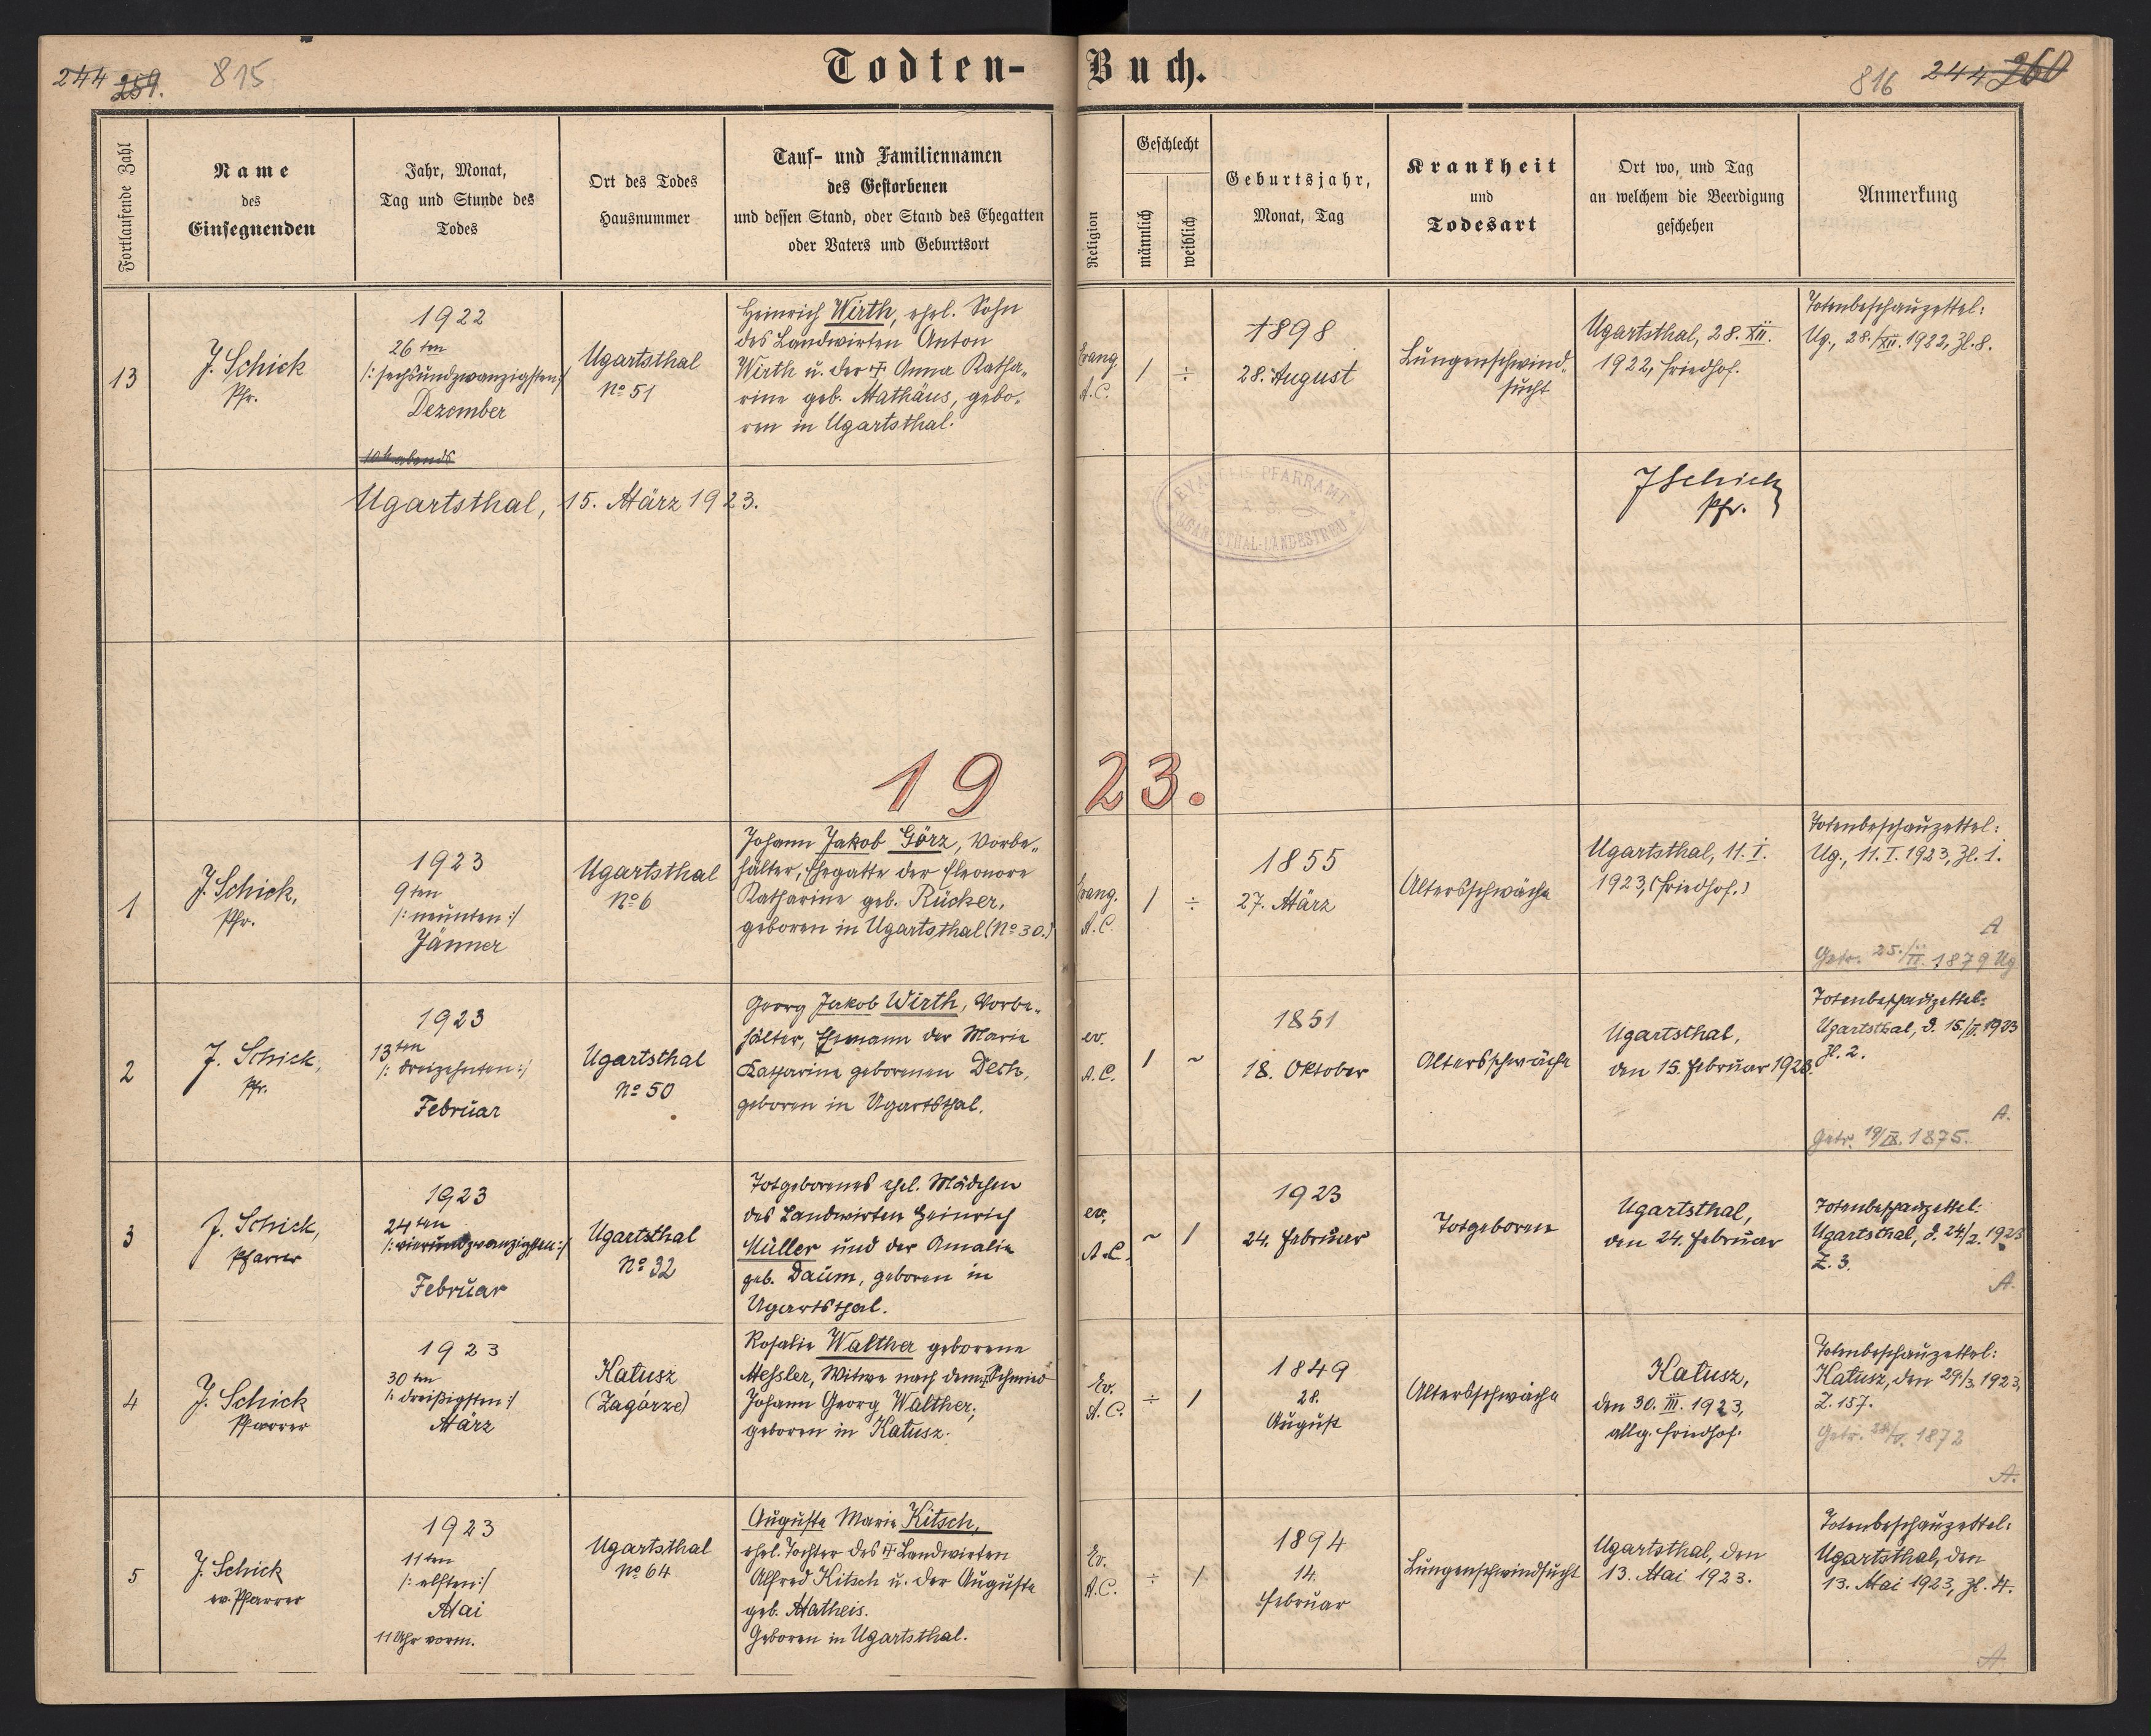 244 259. 815
Todten-Buch.
816 244 260
Fortlaufende Zahl
Name
des
Einsegnenden
Jahr, Monat,
Tag und Stunde des
Todes
Ort des Todes
Hausnummer
Tauf- und Familiennamen
des Gestorbenen
und dessen Stand, oder Stand des Ehegatten
oder Vaters und Geburtsort
Religion
Geschlecht
männlich
weiblich
Geburtsjahr,
Monat, Tag
Krankheit
und
Todesart
Ort wo, und Tag
an welchem die Beerdigung
geschehen
Anmerkung
13
J. Schick
Pfr.
1922
26ten
/: sechsundzwanzigsten :/
Dezember
10 h abends
Ugartsthal
No 51
Heinrich Wirth, ehel. Sohn
des Landwirten Anton
Wirth u. der † Anna Katha-
rine geb. Mathäus, gebo-
ren in Ugartsthal.
Evang.
A.C.
/
÷
1898
28. August
Lungenschwind-
sucht
Ugartsthal, 28. XII.
1922, Friedhof.
Totenbeschauzettel:
Ug., 28./XII. 1922, Zl. 8.
Ugartsthal, 15. März 1923.
EVANGEL. PFARRAMT
A. C.
UGARTSTHAL-LANDESTREU
J Schick
Pfr.
1923.
1
J. Schick,
Pfr.
1923
9ten
/: neunten :/
Jänner
Ugartsthal
No 6
Johann Jakob Görz, Vorbe-
hälter, Ehegatte der Eleonore
Katharine geb. Rücker,
geboren in Ugartsthal (No 30.)
Evang.
A.C.
/
÷
1855
27. März
Altersschwäche
Ugartsthal, 11. I.
1923, (Friedhof.)
Totenbeschauzettel:
Ug., 11. I. 1923, Zl. 1.
A
Getr. 25./II. 1879 Ug
2
J. Schick,
Pfr.
1923
13ten
/: dreizehnten :/
Februar
Ugartsthal
No 50
Georg Jakob Wirth, Vorbe-
hälter, Ehemann der Marie
Katharina geborenen Dech,
geboren in Ugartsthal.
ev.
A.C.
/
~
1851
18. Oktober
Altersschwäche
Ugartsthal,
den 15. Februar 1923.
Totenbeschauzettel:
Ugartsthal, d. 15/II. 1923
Zl. 2.
A.
Getr. 19/IX. 1875.
3
J. Schick,
Pfarrer
1923
24ten
/: vierundzwanzigsten :/
Februar
Ugartsthal
No 32
Totgeborenes ehel. Mädchen
des Landwirten Heinrich
Müller und der Amalie
geb. Daum, geboren in
Ugartsthal.
ev.
A.C.
~
/
1923
24. Februar
Totgeboren
Ugartsthal,
den 24. Februar
Totenbeschauzettel:
Ugartsthal, d. 24/2. 1923
Z. 3.
A.
4
J. Schick
Pfarrer
1923
30ten
/: dreißigsten :/
März
Katusz
(Zagórze)
Rosalie Walther geborene
Messler, Witwe nach dem † Schmied
Johann Georg Walther,
geboren in Katusz.
Ev.
A.C.
÷
/
1849
28.
August
Altersschwäche
Katusz,
den 30. III. 1923,
allg. Friedhof.
Totenbeschauzettel:
Katusz, den 29./3. 1923,
Z. 157.
Getr. 1872
A.
5
J. Schick
ev. Pfarrer
1923
11ten
/: elften :/
Mai
11 Uhr vorm.
Ugartsthal
No 64
Auguste Marie Kitsch,
ehel. Tochter des † Landwirten
Alfred Kitsch u. der Auguste
geb. Matheis.
Geboren in Ugartsthal.
Ev.
A.C.
÷
/
1894
14.
Februar
Lungenschwindsucht
Ugartsthal, den
13. Mai 1923.
Totenbeschauzettel:
Ugartsthal, den
13. Mai 1923, Zl. 4.
A.